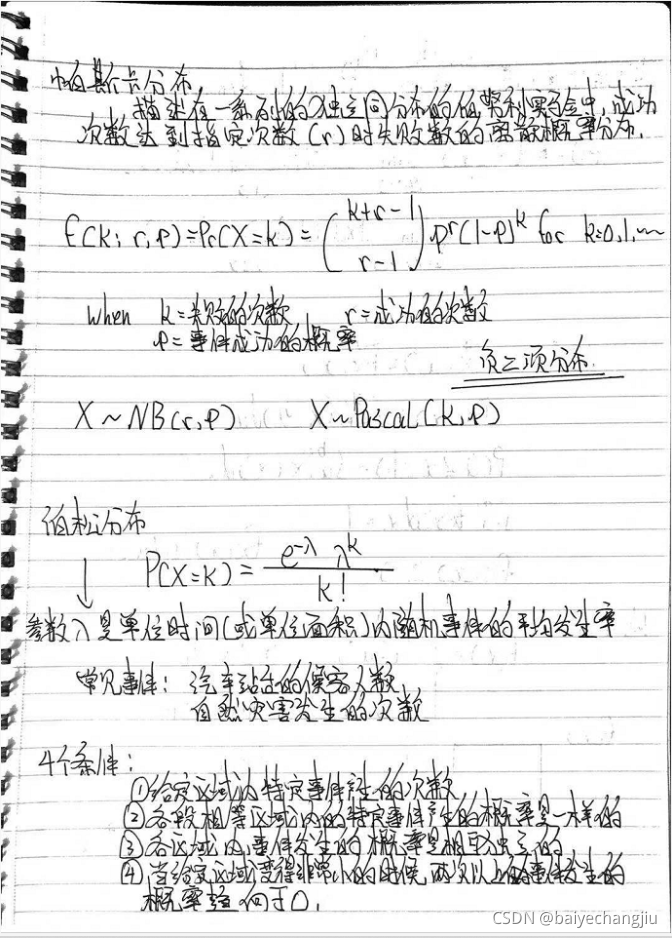 帕斯卡分布
描述在一系列的独立同分布的伯努利实验中,成功
次数达到指定次数(r)时失败数的离散概率分布.
f(k; r, p) = Pr(X=k) = \binom{k+r-1}{r-1} · p^r (1-p)^k for k=0,1,…
when k=失败的次数 r=成功的次数
p=事件成功的概率
负二项分布
X ~ NB(r,p) X ~ Pascal(k,p)
泊松分布
P(X=k) = \frac{e^{-λ} λ^k}{k!}
↓
参数λ是单位时间(或单位面积)内随机事件的平均发生率
常见事件: 汽车站台的候客人数
自然灾害发生的次数
4个条件:
①给定区域内特定事件产生的次数
②各段相等区域内的特定事件产生的概率是一样的
③各区域内,事件发生的概率是相互独立的
④当给定区域变得非常小的时候,两次以上的事件发生的
概率趋向于0.
CSDN @baiyechangjiu